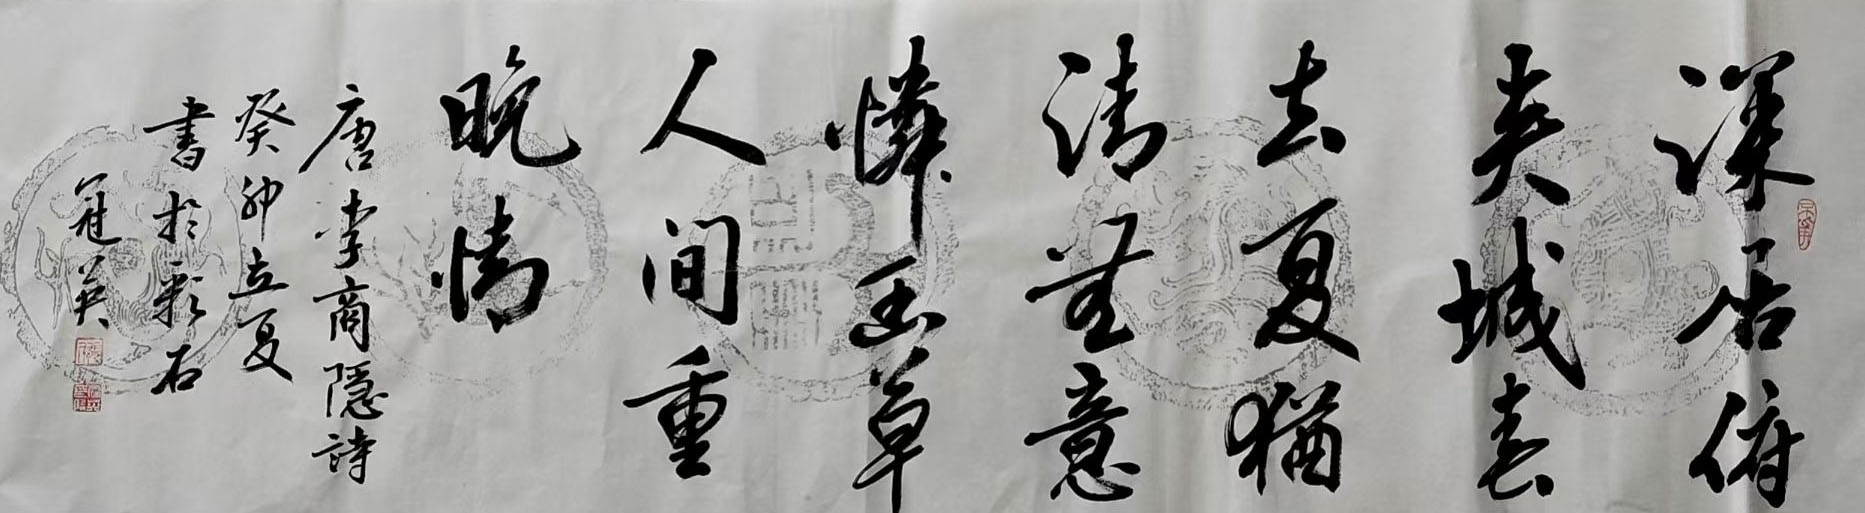 深居俯
夹城春
去夏猶
清無意
憐幽草
人间重
晚情
唐李商隐詩
癸卯立夏
書於彩石
冠英